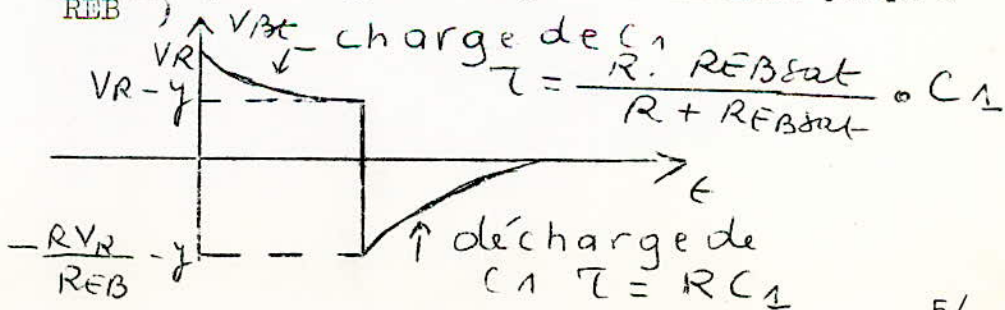 REB )
VBt charge de C1
VR
τ = R. REBsat / R + REBsat . C1
VR-y
t
-RVR / REB - y
décharge de
C1 τ = RC1
5/